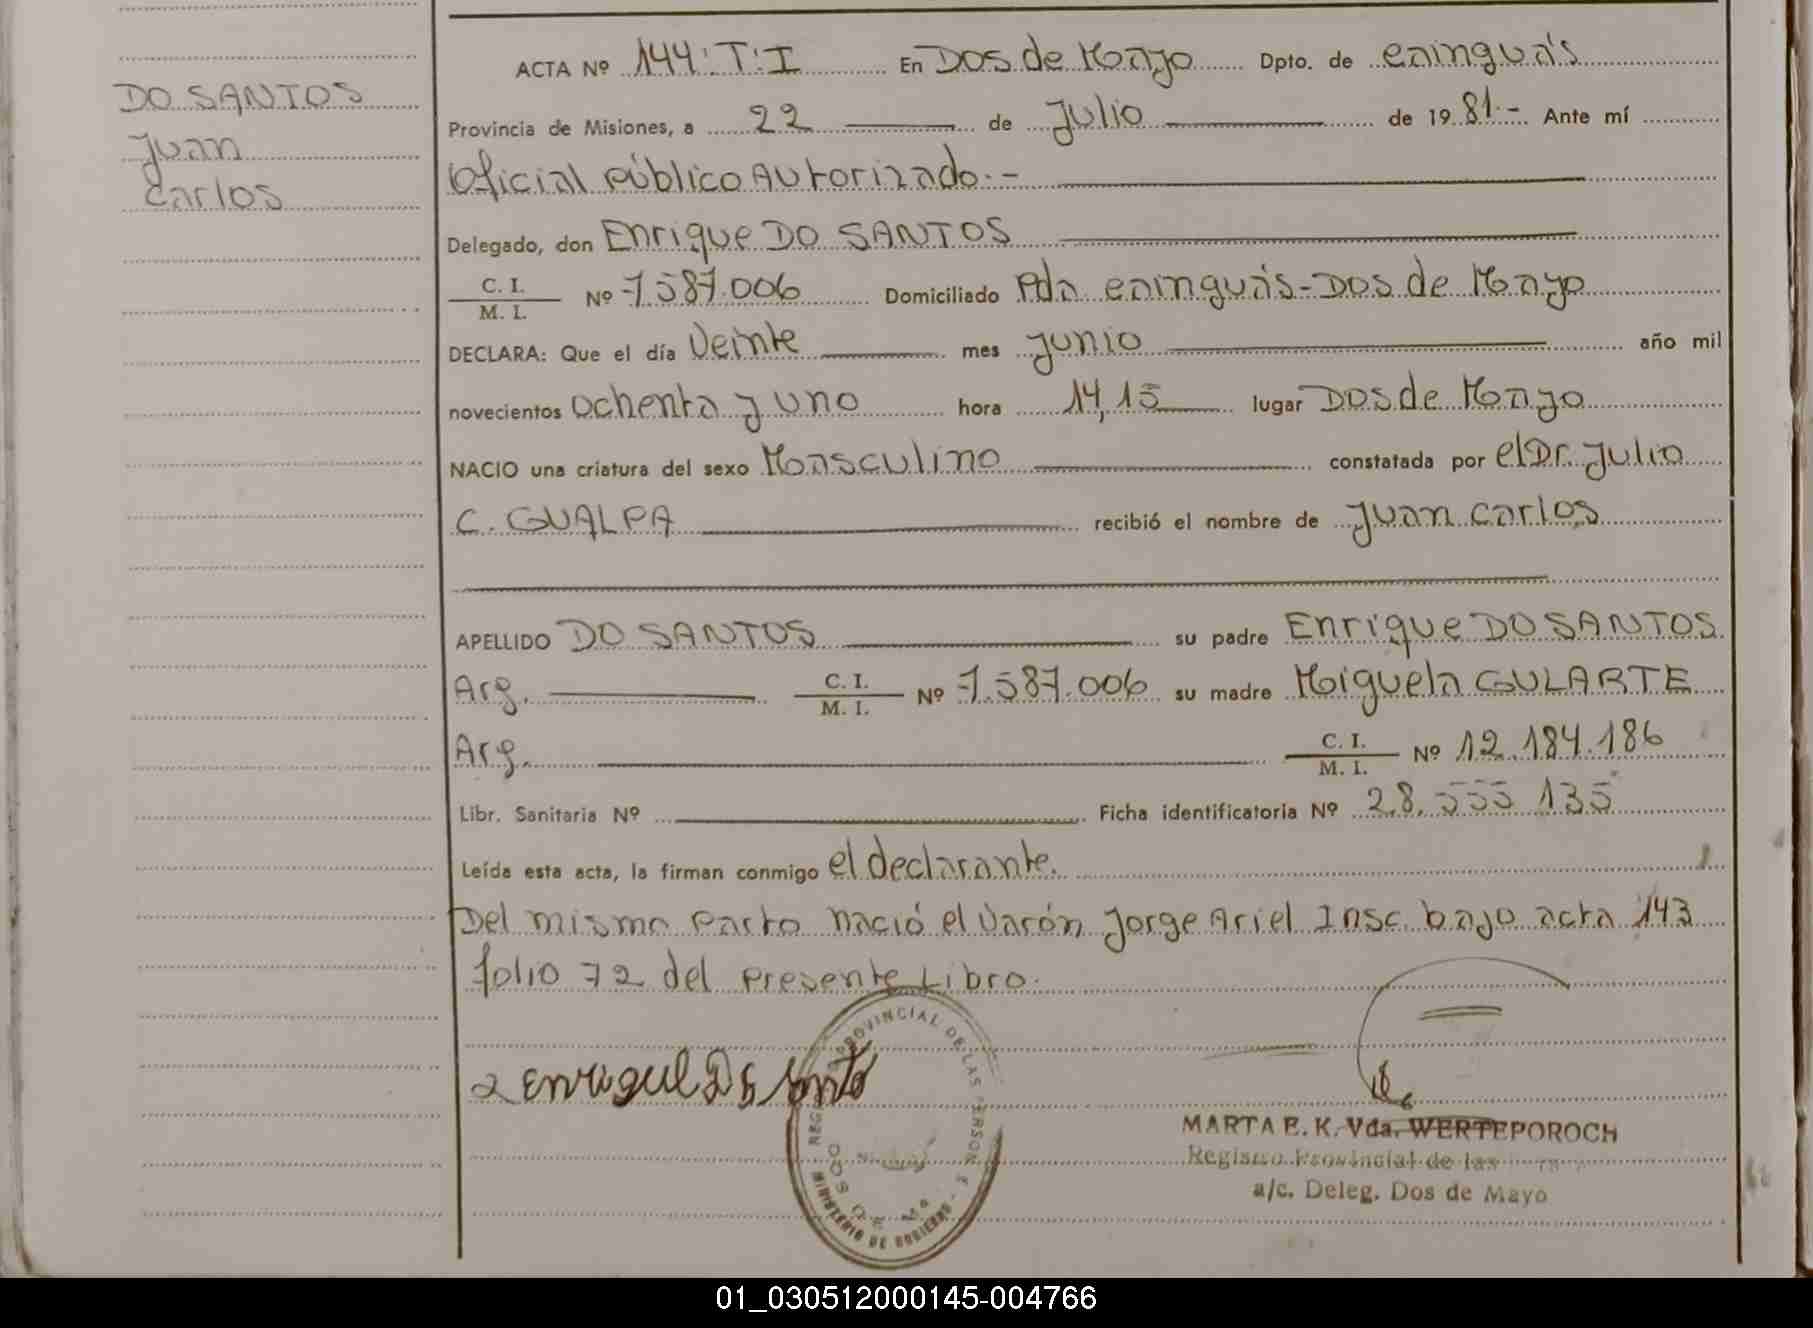 DO SANTOS
Juan
Carlos
ACTA Nº 144:T:I En Dos de Mayo Dpto. de Cainguás
Provincia de Misiones, a 22 de Julio de 1981.- Ante mí
Oficial Público Autorizado.-
Delegado, don Enrique DO SANTOS
C. I.
M. I. Nº 7.587.006 Domiciliado Pda Cainguás-Dos de Mayo
DECLARA: Que el día Veinte mes Junio año mil
novecientos ochenta y uno hora 14,15 lugar Dos de Mayo
NACIO una criatura del sexo Masculino constatada por el Dr. Julio
C. GUALPA recibió el nombre de Juan Carlos
APELLIDO DO SANTOS su padre Enrique DO SANTOS
Arg. C. I. M. I. Nº 7.587.006 su madre Miguela GULARTE
Arg. C. I. M. I. Nº 12.184.186
Libr. Sanitaria Nº Ficha identificatoria Nº 28.555 135
Leída esta acta, la firman conmigo el declarante.
Del mismo Parto nació el Varón Jorge Ariel Insc. bajo acta 143
folio 72 del Presente Libro.
PROVINCIAL DE LAS PERSON
MINISTERIO DE GOBIERNO
MARTA E. K. Vda. WERTEPOROCH
Registro Provincial de las
a/c. Deleg. Dos de Mayo
01_030512000145-004766